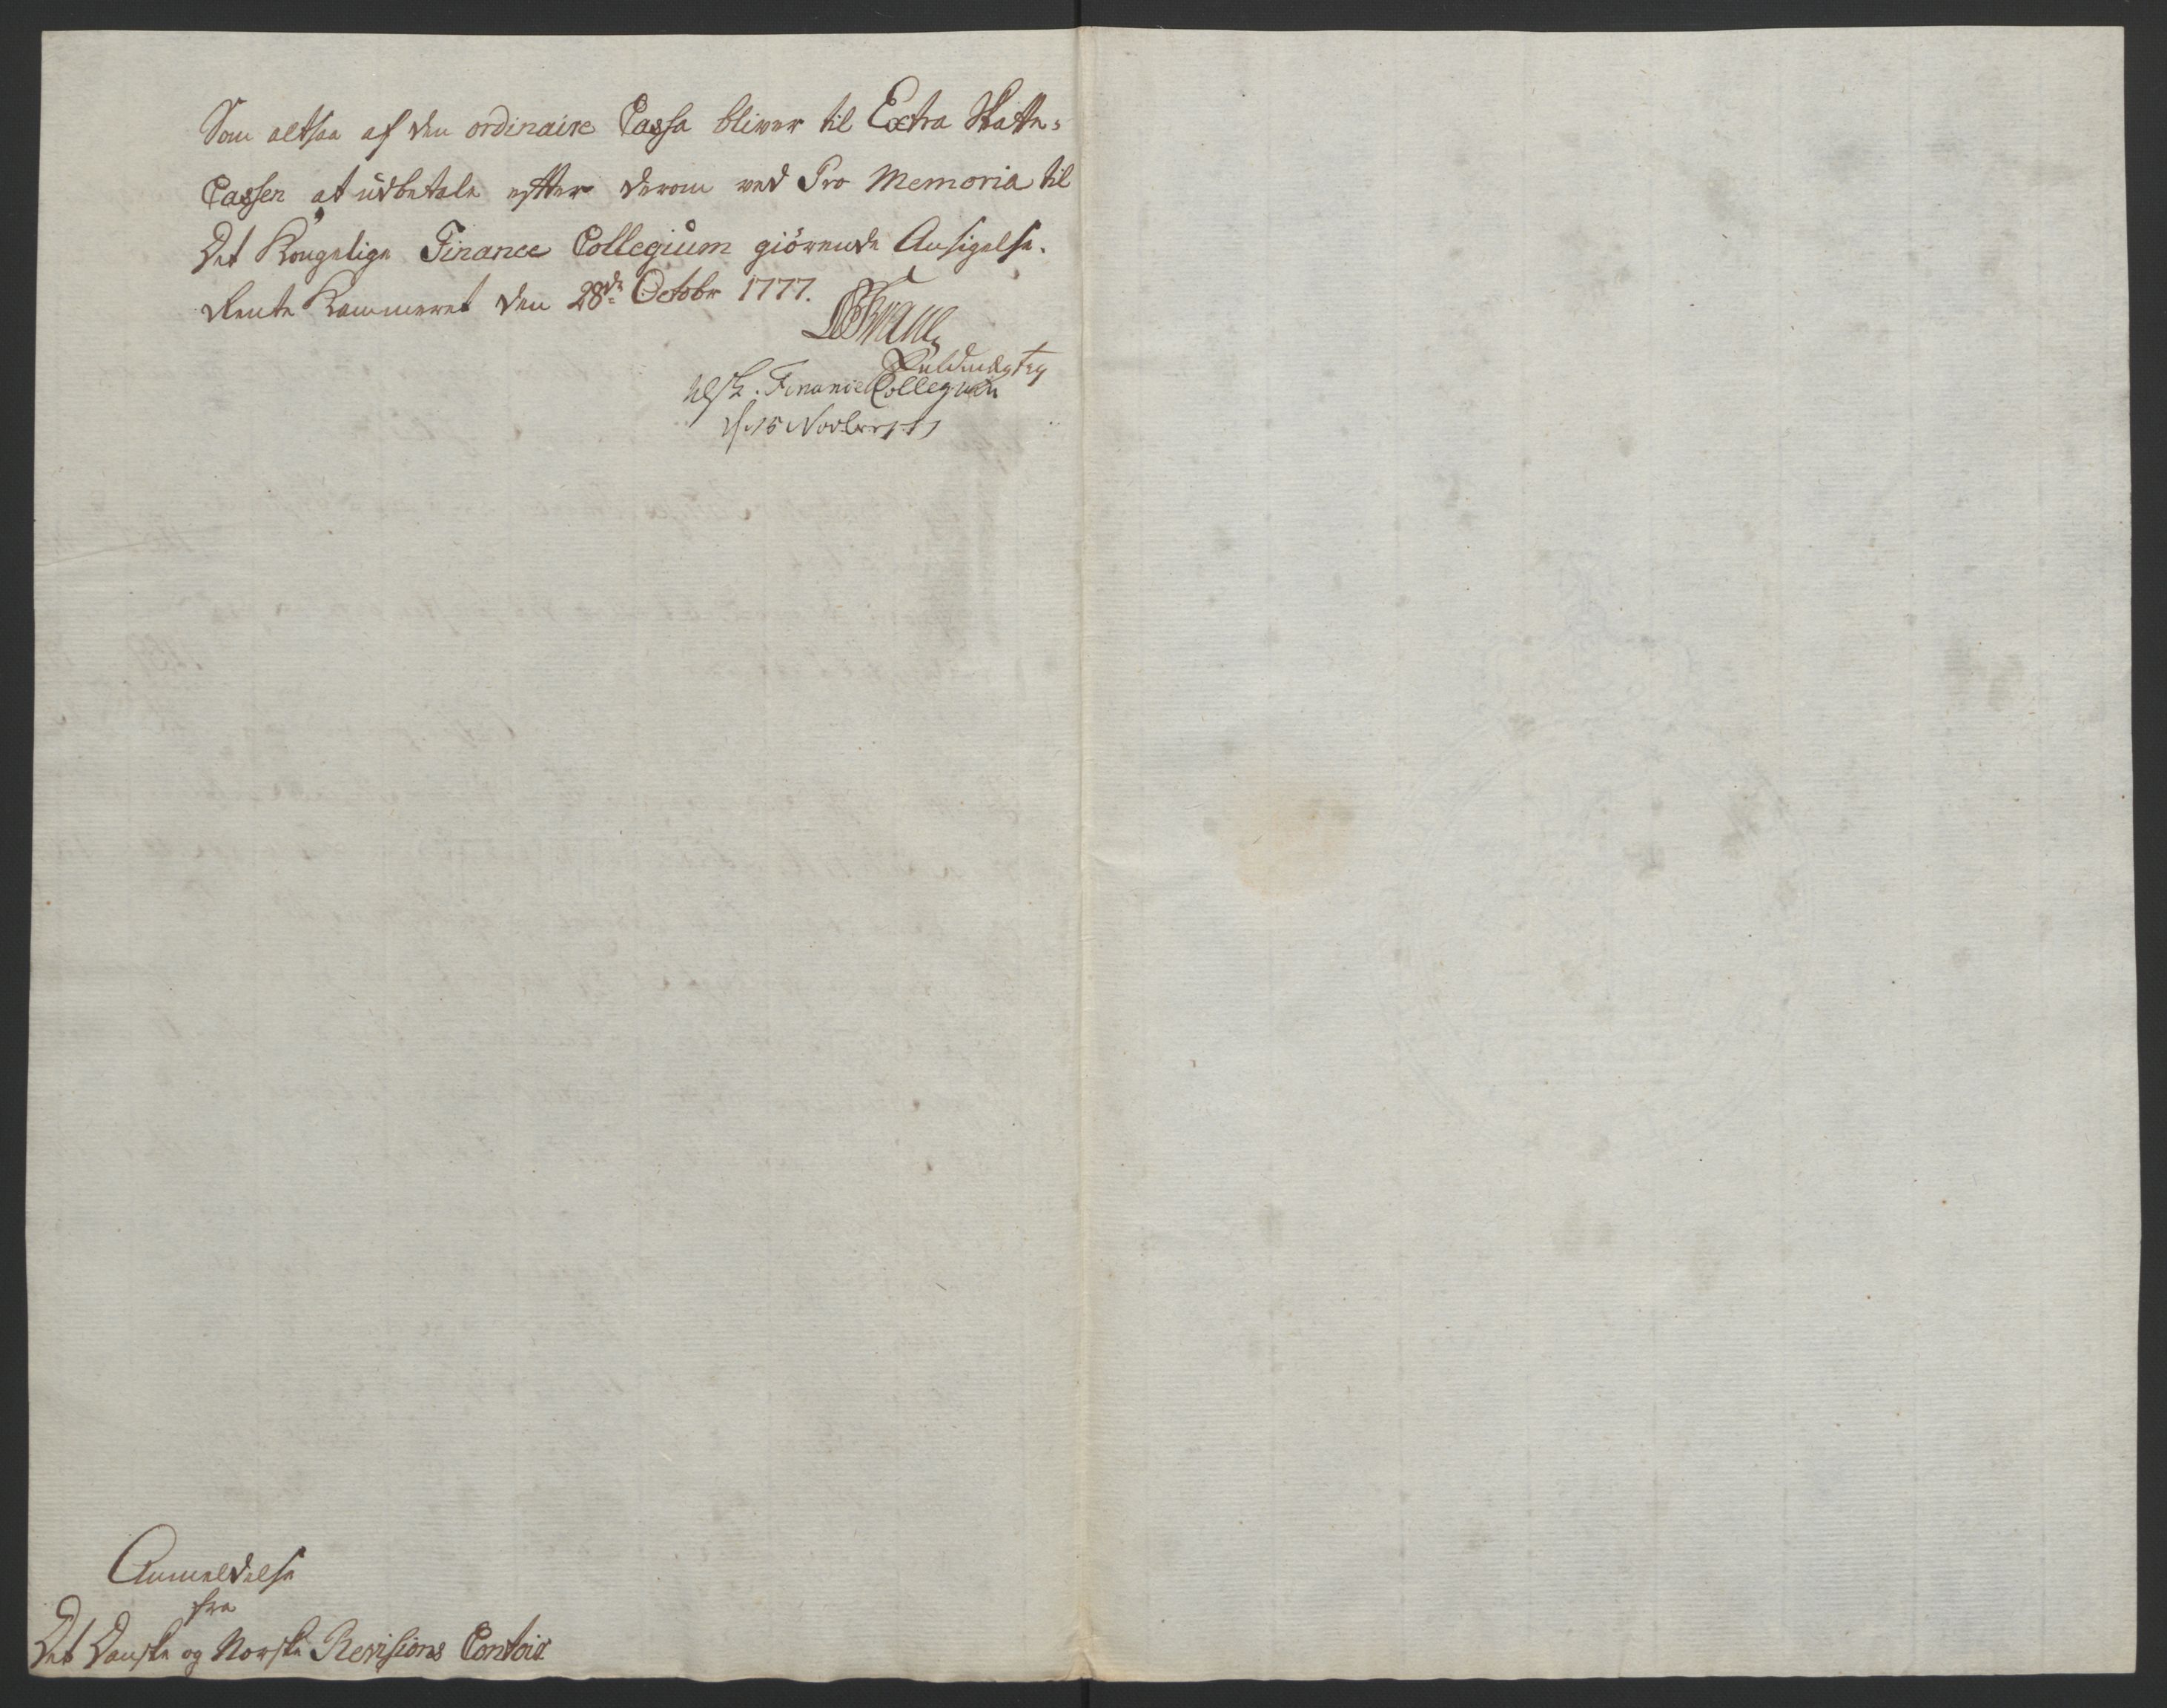 Som altsaa af den ordinaire Cassa bliver til Extra Skatte-
Cassen at udbetale efter derom ved Pro Memoria til
Det Kongelige Finance Collegium giörende Ansigelse.
Rente Kammeret den 28de Octobr 1777.
Fuldmægtig
Finance Collegium
d. 15 Novbr
Anmeldelse
fra
Det Danske og Norske Revisions Contoir